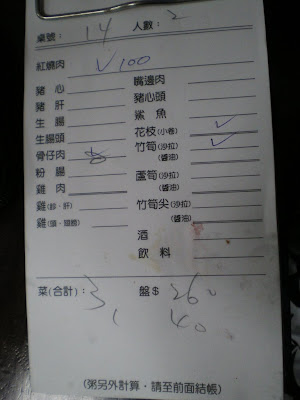 桌號: 14 人數: 2
紅燒肉 ✓100
豬心 嘴邊肉
豬肝 豬心頭
生腸 鯊魚
生腸頭 花枝(小卷) ✓
骨仔肉 竹筍(沙拉) ✓
(醬油)
粉腸 蘆筍(沙拉)
雞肉 (醬油)
雞(胗、肝) 竹筍尖(沙拉)
雞(頭、翅膀) (醬油)
酒
飲料
菜(合計): 3 盤$ 260
1 40
(粥另外計算,請至前面結帳)